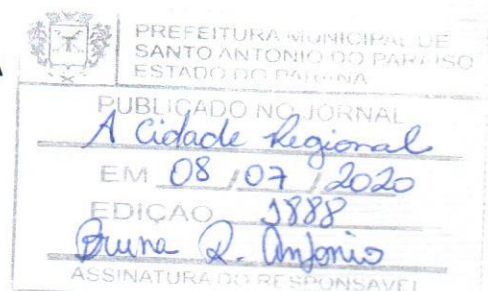 PREFEITURA MUNICIPAL DE
SANTO ANTONIO DO PARAISO
ESTADO DO PARANA
PUBLICADO NO JORNAL
A Cidade Regional
EM 08 / 07 / 2020
EDIÇÃO 1888
Bruna R. Antonio
ASSINATURA DO RESPONSAVEL